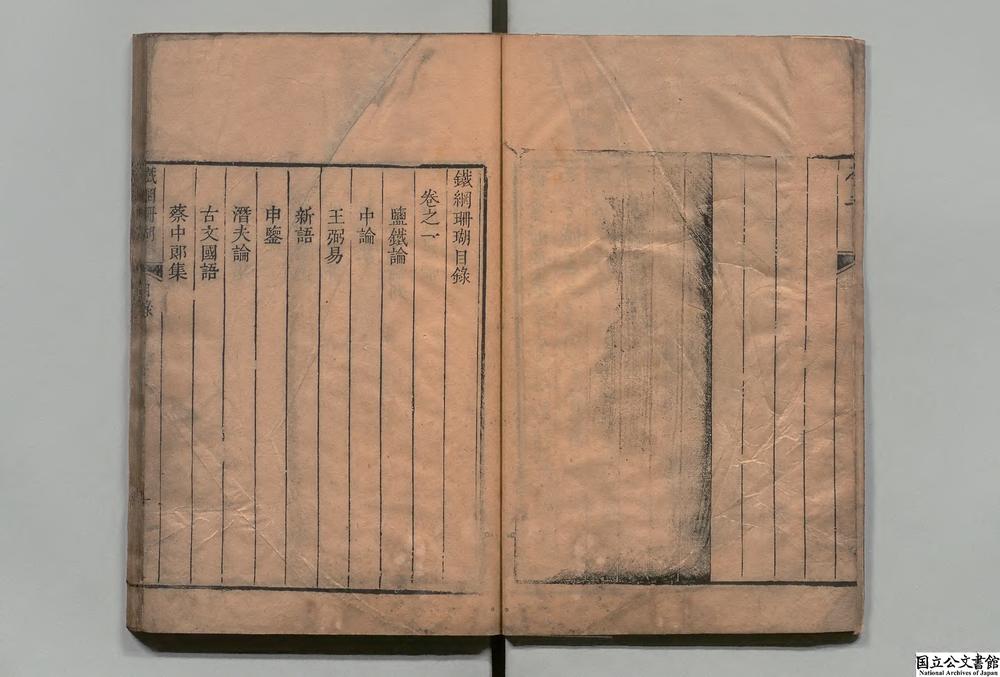 鐵網珊瑚目錄
卷之一
鹽鐵論
中論
王弼易
新語
申鑒
潛夫論
古文國語
蔡中郎集
鐵網珊瑚
目錄
国立公文書館
National Archives of Japan